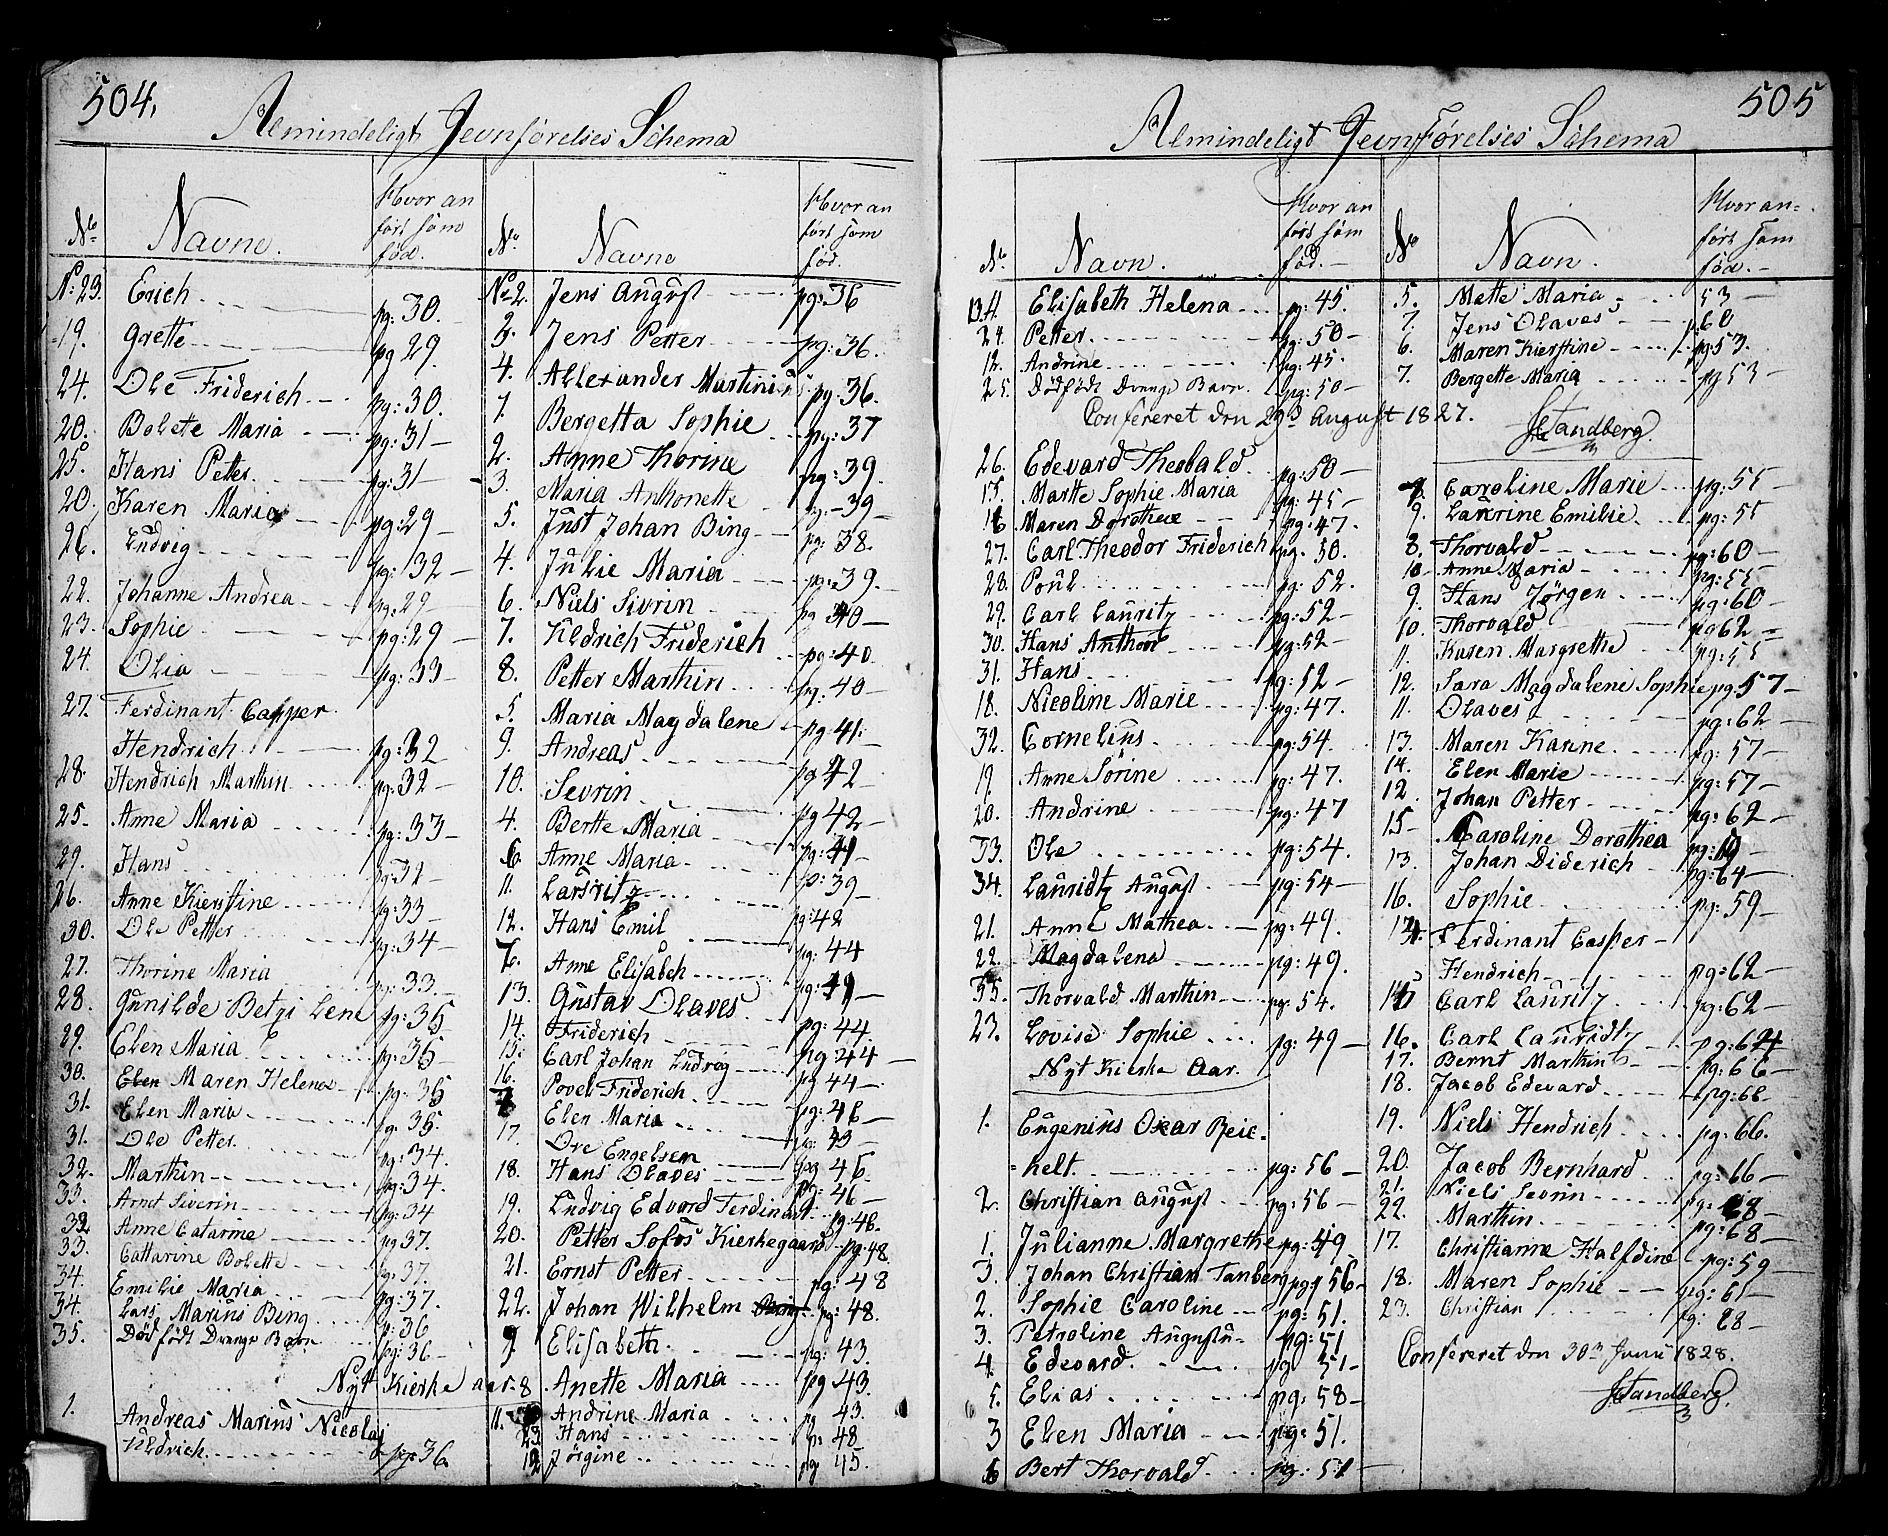 504.
Almindeligt Jevnførelses Schema
No Navne. Hvor an ført som fød.
N: 23. Erich pg: 30.
19. Grette pg 29.
24. Ole Friderich pg: 30.
20. Bolete Maria pg: 31
25. Hans Petter pg: 31
20. Karen Maria pg: 29
26. Ludvig pg: 32
22. Johanne Andrea pg: 29
23. Sophie pg: 29
24. Olia pg: 33
27. Ferdinant Casper
Hendrich pg: 32
28. Hendrich Marthin pg: 32
25. Anne Maria pg: 33
29. Hans pg: 32
26. Anne Kierstine pg: 33
30. Ole Petter pg: 34
27. Thorine Maria pg: 33
28. Gunilde Betzi Lene pg: 35
29. Elen Maria pg: 35
30. Maren Helena pg: 35
31. Elen Maria pg: 35.
31. Ole Petter pg: 34.
32. Marthin pg: 34.
33. Arnt Siverin pg: 34
32 Anne Catarine pg 37.
33. Cattarine Bolette pg: 37.
34. Emilie Maria pg: 37.
34. Lars Marius Bing p: 36
35. Dødfødt Drenge Barn pg: 36
Nyt Kierke aar
1. Andreas Marius Nicolaj
Uldrich pg: 36.
No. Navne Hvor an ført som fød.
No 2. Jens August pg: 36
3. Jens Petter pg: 36.
4. Allexander Martinius pg: 36.
1. Bergetta Sophie pg: 37
2. Anne Thorine pg: 39.
3. Maria Anthonette pg: 39
5. Just Johan Bing pg: 38.
4. Julie Maria pg: 39.
6. Niels Sivrin pg 40
7. Uldrich Friderich pg: 40.
8. Petter Marthin pg: 40
5. Maria Magdalene pg: 41.
9. Andreas pg 42
10. Sevrin pg 42
4. Berte Maria pg: 41
6. Anne Maria p: 39
11. Lauritz pg: 42
12. Hans Emil pg: 44
7. Anne Elisabeh pg: 41
13. Gustav Olaves pg: 44.
14. Friderich pg: 44
15. Carl Johan Ludvog pg 44
16. Povel Friderich pg: 46
Elen Maria pg: 43
17. Ove Engelsen pg 46.
18. Hans Olaves pg: 46
19. Ludvig Edvord Ferdinant pg: 46.
20. Petter Sofus Kierkegaard pg: 48
21. Ernst Petter pg: 48
22. Johan Wilhelm pg: 48.
9. Elisabeth pg: 43.
8 Anette Maria pg 43.
11. Andrine Maria pg 43.
23 Hans pg 48
12 Jørgine pg 45.
505
Almindeligt JevnFørelses Schema
No. Navn. Hvor an ført som fød.
13. Elisabeth Helena pg: 45.
24. Petter pg: 50
12. Andrine pg: 45.
25. Dødfødt Drenge Barn pg: 50
Confereret den 29de August 1827.
26. Edevard Theobald pg: 50
15. Martte Sophie Maria pg: 45
16 Maren Dorothea pg: 47.
27. Carl Theodor Friderich pg. 50.
28. Poul pg: 52.
29. Carl Lauritz pg: 52
30. Hans Anthon pg: 52
31. Hans pg: 52
18. Nicoline Marie pg: 47.
32. Cornelius pg: 54.
19. Anne Sørine pg: 47.
20. Andrine pg: 47
33. Ole pg: 54.
34. Lauridtz August pg: 54
21. Anne Mathea pg: 49.
22. Magdalena pg: 49.
35. Thorvald Marthin pg: 54.
23. Lovise Sophie pg: 49
Nyt Kierke Aar.
1. Eugenius Oxar Beic-
helt. pg: 56
2. Christian August pg: 56
1. Julianne Margrethe pg: 49
3. Johan Christian Tanberg pg 56
2. Sophie Caroline pg: 51.
3. Petroline Augusta pg: 51
4 Edevard pg 51
5. Elias pg: 58
3 Elen Maria pg: 51.
6 Bert Thorvald pg: 51
No Navn. Hvor an- ført som fød.
5. Mette Maria 53
7. Jens Olaves pg 60
6. Maren Kierstine pg: 53.
7. Bergette Maria pg 53
Standberg.
Caroline Marie pg: 55
9. Laurine Emilie pg: 55
8. Thorvald pg: 60
10. Anne Maria pg: 55
9. Hans Jørgen pg: 60
10. Thorvald pg 62
11. Karen Margrethe pg: 55
12. Sara Magdaleni Sophie pg. 57
11. Olaves pg: 62
13. Maren Karine pg: 57
14. Elen Marie pg: 57
12. Johan Petter pg: 62
15 Caroline Dorothea pg:
13. Johan Diderich pg: 64
16. Sophie pg: 59
14. Ferdinant Casper
Hendrich pg: 62
15 Carl Lauritz pg: 62
16. Carl Lauridtz pg: 64
17. Bernt Marthin pg: 66
18. Jacob Edevard pg: 66
19. Niels Hendrich pg: 66.
20. Jacob Bernhard pg: 66
21. Niels Sevrin pg: 68
22. Marthin pg: 68
17. Christianne Halfdine pg: 59
18. Maren Sophie pg: 61
23. Christian pg: 68
Confereret den 30te Junii 1828.
Standberg.